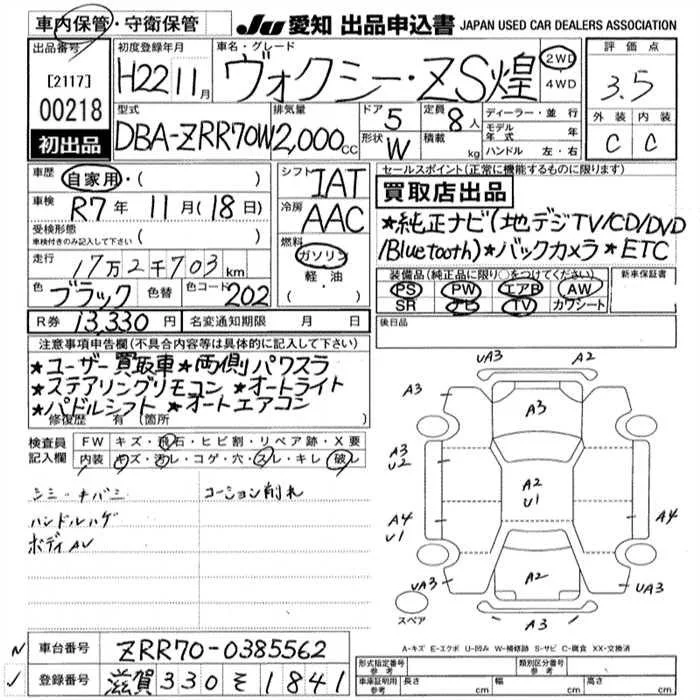 車内保管・守衛保管
JU 愛知 出品申込書 JAPAN USED CAR DEALERS ASSOCIATION
出品番号
[2117]
00218
初出品
初度登録年月
H22 11月
車名・グレード
ヴォクシー・ZS煌
2WD
4WD
評価点
3.5
外装 内装
C C
型式
DBA-ZRR70W
排気量
2,000cc
ドア 5
形状 W
定員 8人
積載 kg
ディーラー・並行
モデル年式 年
ハンドル 左・右
車歴 自家用・( )
車検 R7年 11月(18日)
受検形態
車検付きのみ記入して下さい ( )
走行 17万2千703km
色 ブラック 色替 色コード 202
シフト IAT
冷房 AAC
燃料
ガソリン
軽・油
セールスポイント(正常に機能するものに限ります)
買取店出品
★純正ナビ(地デジTV/CD/DVD
/Bluetooth)★バックカメラ★ETC
装備品(純正品に限り○をつけてください)
PS PW エアB AW
SR ナビ TV カワシート
新車保証書
後日品
R券 13,330円 名変通知期限 月 日
注意事項申告欄(不具合内容等は具体的に記入して下さい)
★ユーザー買取車★両側パワスラ
★ステアリングリモコン★オートライト
★パドルシフト★オートエアコン
修復歴 有(箇所 )
検査員記入欄
FW キズ・飛石・ヒビ割・リペア跡・X要
内装 キズ・汚レ・コゲ・穴・スレ・キレ・破レ
シミ・チバミ コーション削れ
ハンドルハゲ
ボディAU
UA3 A2
A3 A3
A3
U2
A2
U1
A4
U1
A4
A2
UA3 UA3
A3
スペア
A-キズ E-エクボ U-凹み W-補修跡 S-サビ C-腐食 XX-交換済
車台番号 ZRR70-0385562
登録番号 滋賀 330 そ 1841
形式指定番号
参考
類別区分番号
参考
車庫証明用
参考
長さ cm 幅 cm 高さ cm